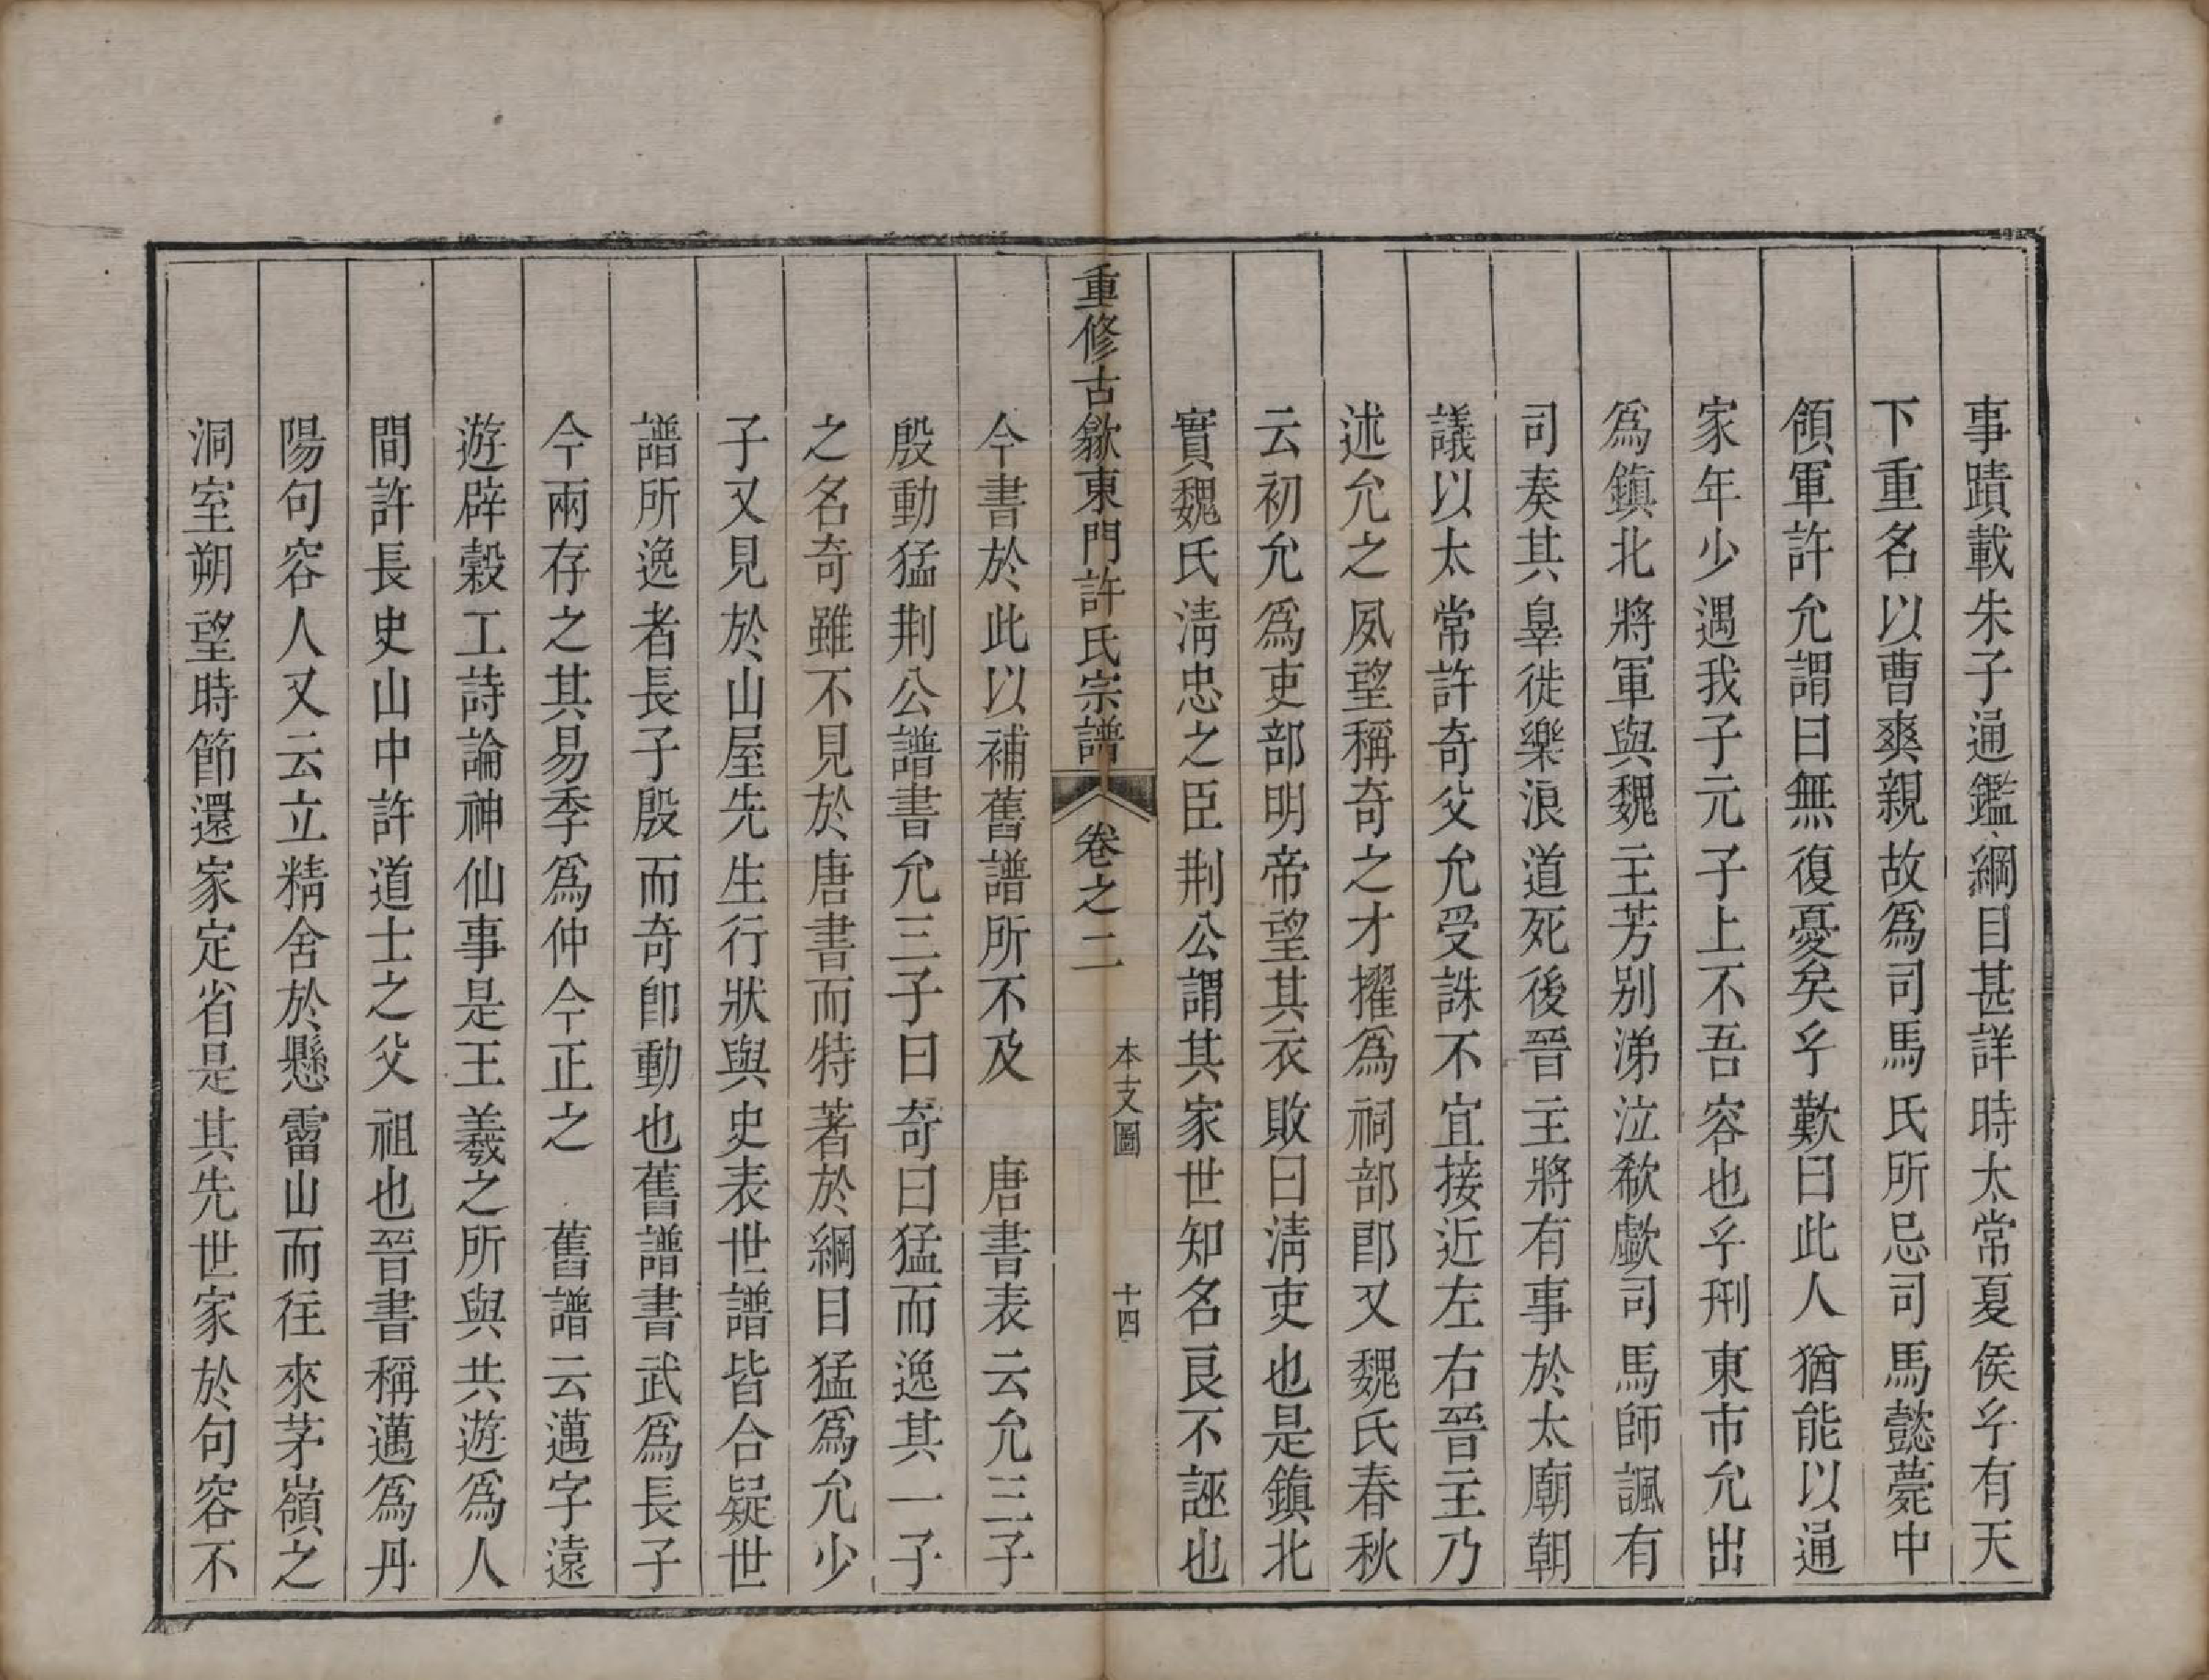 事蹟載朱子通鑑綱目甚詳時太常夏侯乎有天
下重名以曹爽親故爲司馬氏所忌司馬懿薨中
領軍許允謂曰無復憂矣乎歎曰此人猶能以通
家年少遇我子元子上不吾容也乎刑東市允出
爲鎭北將軍與魏主芳别涕泣欷歔司馬師諷有
司奏其辠徙樂浪道死後晉主將有事於太廟朝
議以太常許奇父允受誅不宜接近左右晉主乃
述允之夙望稱奇之才擢爲祠部郎又魏氏春秋
云初允爲吏部明帝望其衣敗曰淸吏也是鎭北
實魏氏淸忠之臣荆公謂其家世知名良不誣也
重修古歙東門許氏宗譜 卷之二 本支圖 十四
今書於此以補舊譜所不及 唐書表云允三子
殷動猛荆公譜書允三子曰奇曰猛而逸其一子
之名奇雖不見於唐書而特著於綱目猛爲允少
子又見於山屋先生行狀與史表世譜皆合疑世
譜所逸者長子殷而奇卽動也舊譜書武爲長子
今兩存之其易季爲仲今正之 舊譜云邁字遠
遊辟穀工詩論神仙事是王羲之所與共遊爲人
間許長史山中許道士之父祖也晉書稱邁爲丹
陽句容人又云立精舍於懸霤山而往來茅嶺之
洞室朔望時節還家定省是其先世家於句容不